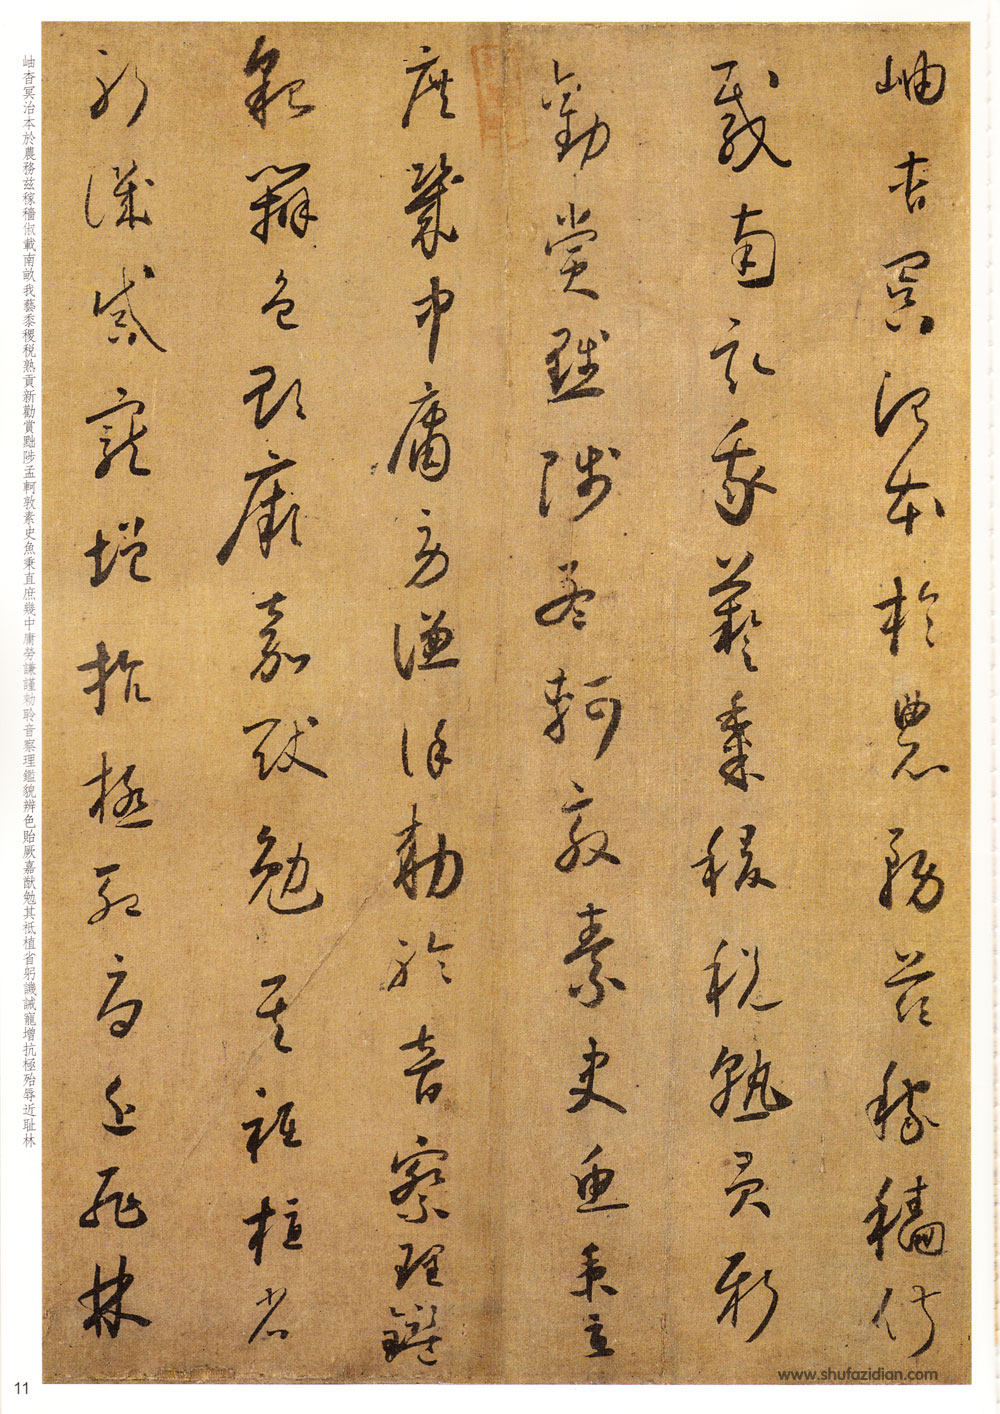 岫杳冥治本於農務茲稼穡俶
載南畝我藝黍稷稅熟貢新
勸賞黜陟孟軻敦素史魚秉直
庶幾中庸勞謙謹勅聆音察理鑑
貌辨色貽厥嘉猷勉其祗植省
躬譏誡寵增抗極殆辱近恥林
岫杳冥治本於農務茲稼穡俶載南畝我藝黍稷稅熟貢新勸賞黜陟孟軻敦素史魚秉直庶幾中庸勞謙謹勅聆音察理鑑貌辨色貽厥嘉猷勉其祗植省躬譏誡寵增抗極殆辱近耻林
11
www.shufazidian.com